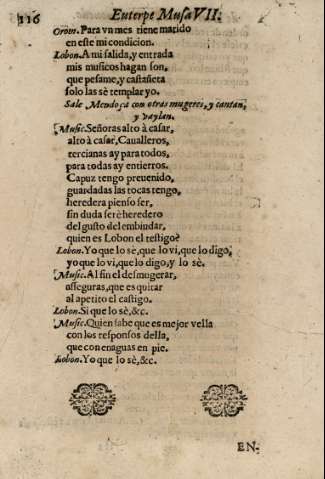 116 Euterpe Musa VII.
Orom. Para vn mes tiene marido
en este mi condicion.
Lobon. A mi salida, y entrada
mis musicos hagan son,
que pesame, y castañeta
solo las sè templar yo.
Sale Mendoça con otras mugeres, y cantan,
y vaylan.
Music. Señoras alto à casar,
alto à casar, Caualleros,
tercianas ay para todos,
para todas ay entierros.
Capuz tengo preuenido,
guardadas las tocas tengo,
heredera pienso ser,
sin duda serè heredero
del gusto del embiudar,
quien es Lobon el testigo?
Lobon. Yo que lo sè, que lo vi, que lo digo,
yo que lo vi, que lo digo, y lo sè.
Music. Al fin el desmugerar,
asseguras, que es quitar
al apetito el castigo.
Lobon. Si que lo sè, &c.
Music. Quien sabe que es mejor vella
con los responsos della,
que con enaguas en pie.
Lobon. Yo que lo sè, &c.
EN-